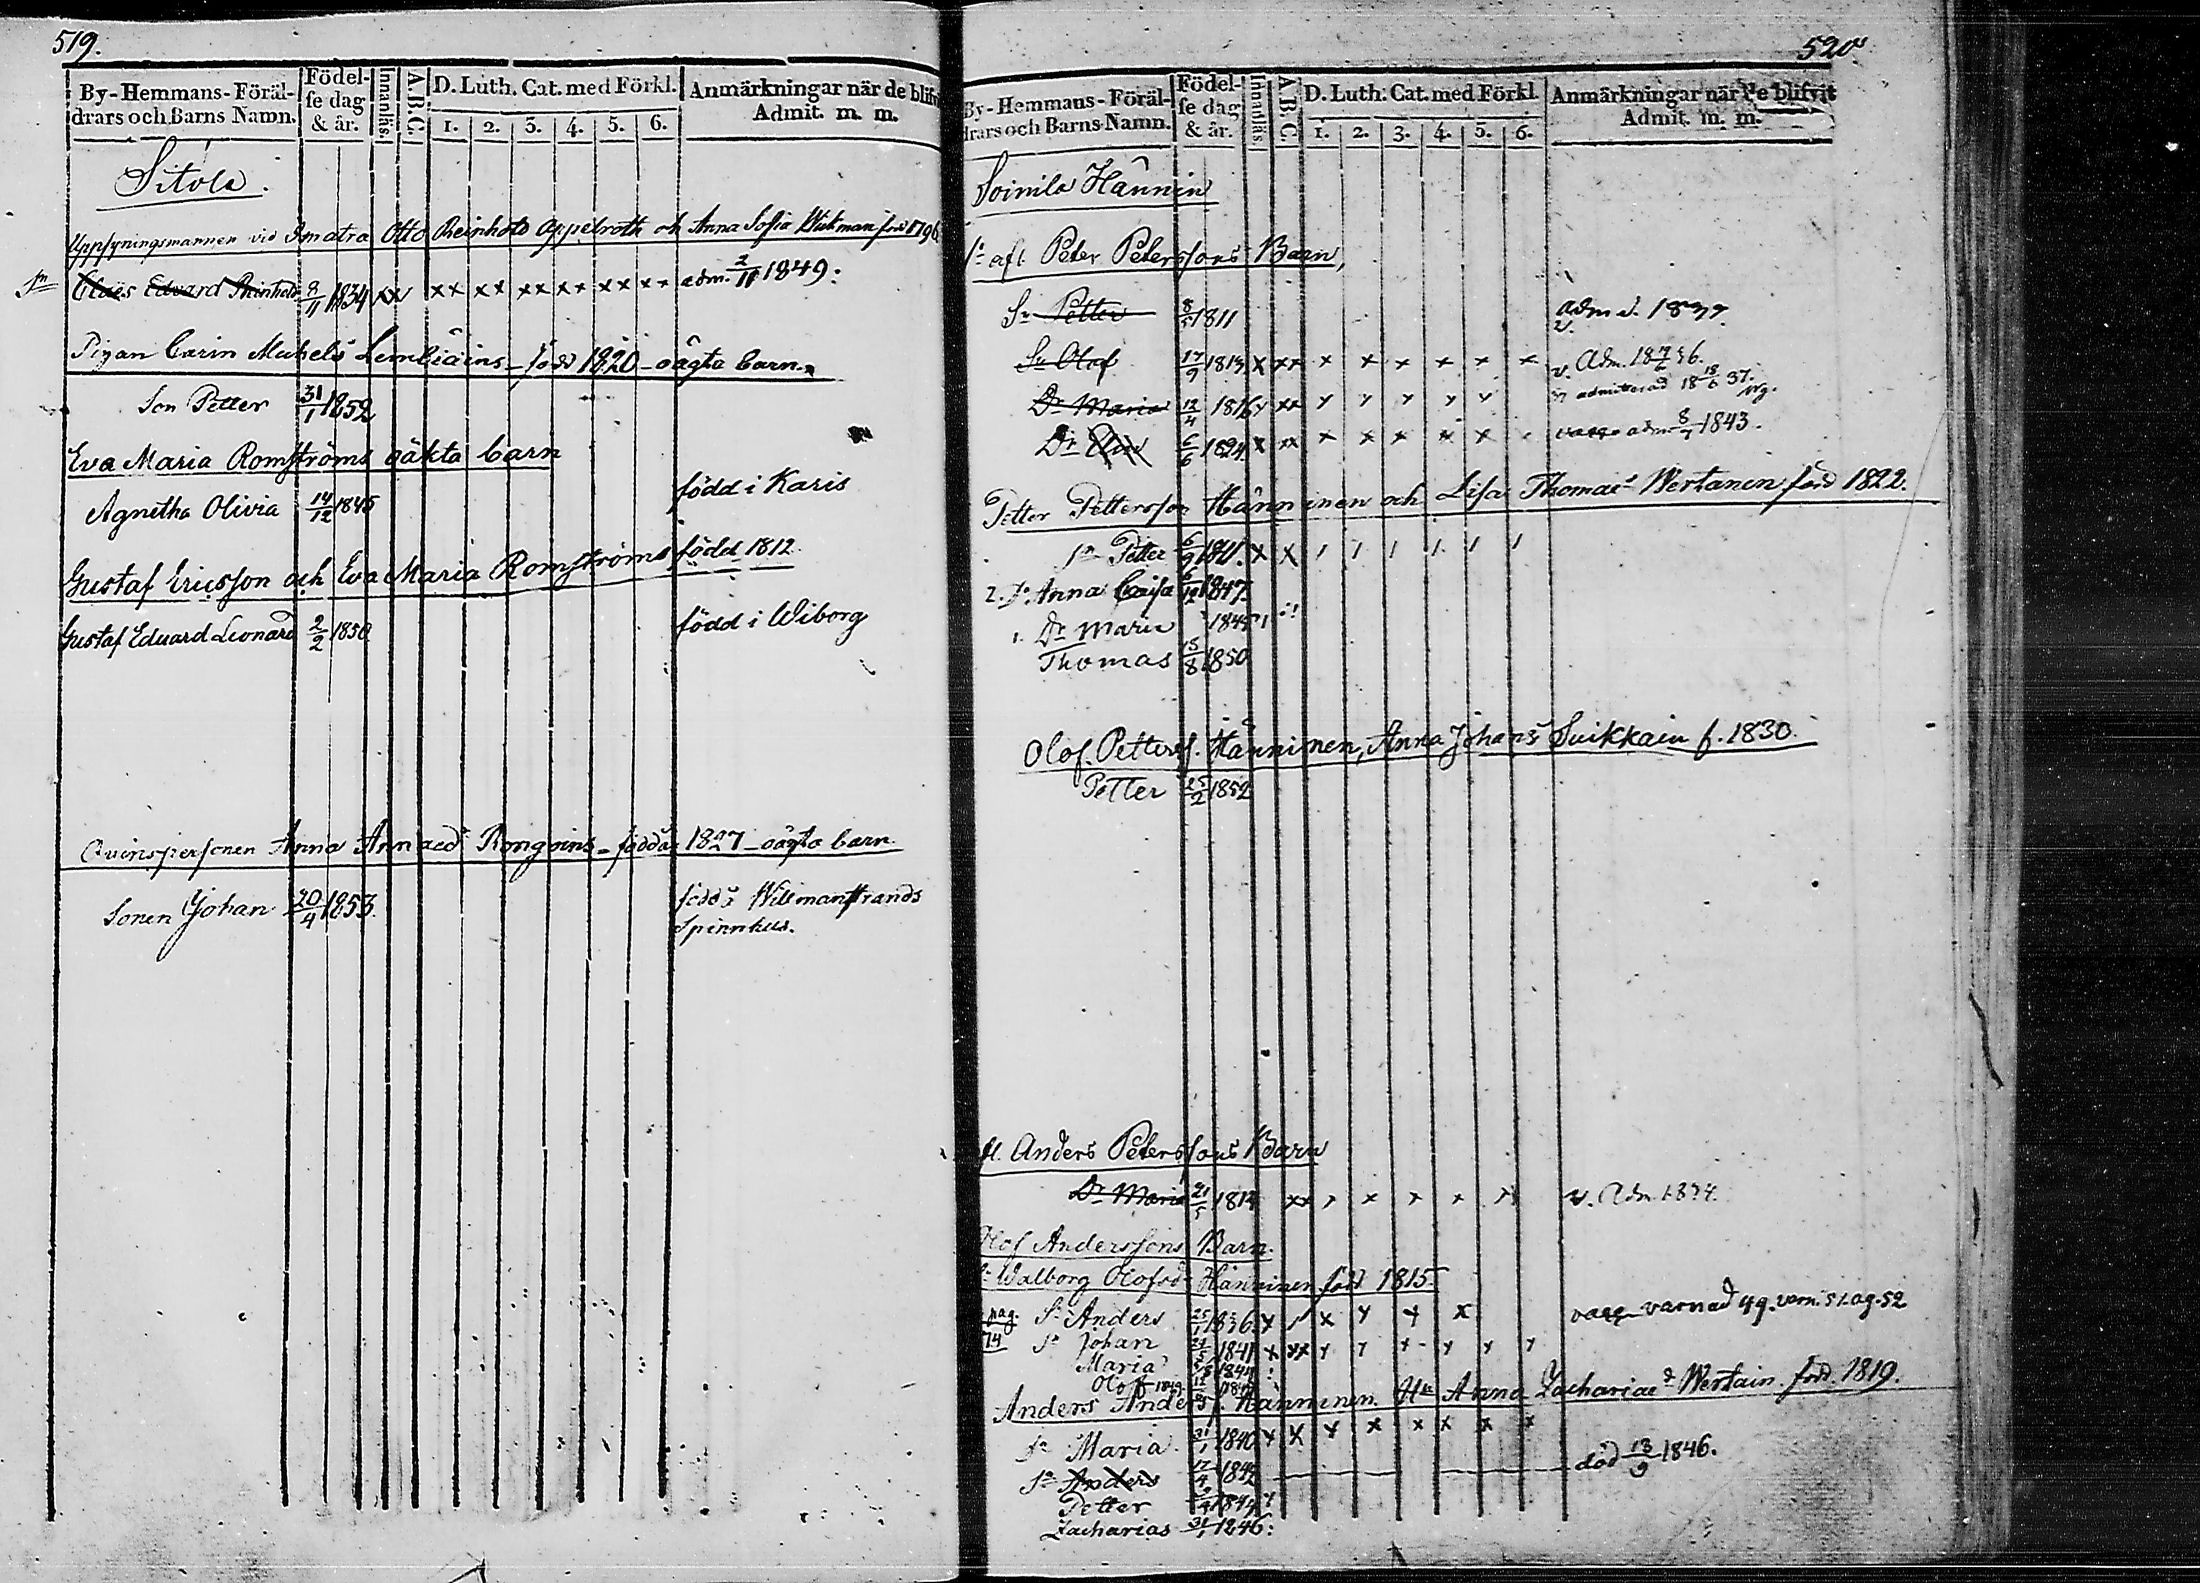 519.
By-Hemmans-Föräl-drars och Barns Namn. Födel-se dag & år. Innanläs. A.B.C. D. Luth. Cat. med Förkl. 1. 2. 3. 4. 5. 6. Anmärkningar när de blifv Admit. m. m.
Sitola.
Uppsyningsmannen vid Imatra Otto Reinhold Appelroth och Anna Sofia Wickman född 1796
Sn Claës Edvard Reinhold 8/11 1834 xx xx xx xx xx xx xx adm. 2/11 1849.
Pigan Carin Michels Lembiäins - född 1820 - oägta barn.
Son Petter 31/1 1852
Eva Maria Romströms oäkta barn
Agnetha Olivia 14/12 1845 född i Karis
Gustaf Ericsson och Eva Maria Romströms född 1812.
Gustaf Eduard Leonard 2/2 1850 född i Wiborg
Qvinspersonen Anna Annaed Rongains - född 1827 - oägta barn.
Sonen Johan 20/4 1853. född i Willmanstrands
Spinnhus.
520
By-Hemmans-Föräl-drars och Barns Namn. Födel-se dag & år. Innanläs. A.B.C. D. Luth. Cat. med Förkl 1. 2. 3. 4. 5. 6. Anmärkningar när de blifvit Admit. m. m.
Soinila Hännin
afl. Peter Peterssons Barn,
Sn Petter 8/5 1811 adm. 1837.
Sn Olof 17/9 1813 x xx x x x x x x v. Adm.
Dr Maria 12/4 1816 admitterad 18 18/6 37.
Dr 6/6 1824 x xx x x x x x adm 8/7 1843.
Petter Pettersson Hänninen och Lisa Thomaed Wertanen född 1822.
Petter x x 1 1 1 1 1 1
2. Anna Caisa 1847
1. Dr Maria 1845
Thomas 15/8 1850
Olof Petterss. Hänninen, Anna Johans Suikkain f. 1830.
Petter 25/2 1852
Anders Peterssons Barn
Dr Maria 21/5 v. Adm. 1834.
Olof Anderssons Barn.
Walborg Olofsd Hänninen född 1815.
pag. Sn Anders 25/1 1836 varnad 49. varn. 51. ag. 52
74 Sn Johan 1841
Maria
Olof
Anders Anders. Hänninen. Hu Anna Zachariaed Wertain. född. 1819.
Maria 31/1 1840 x x x x x x x x
Sn Anders 17/4 1842 död 13/9 1846.
Petter 1844
Zacharias 31/1 1846.